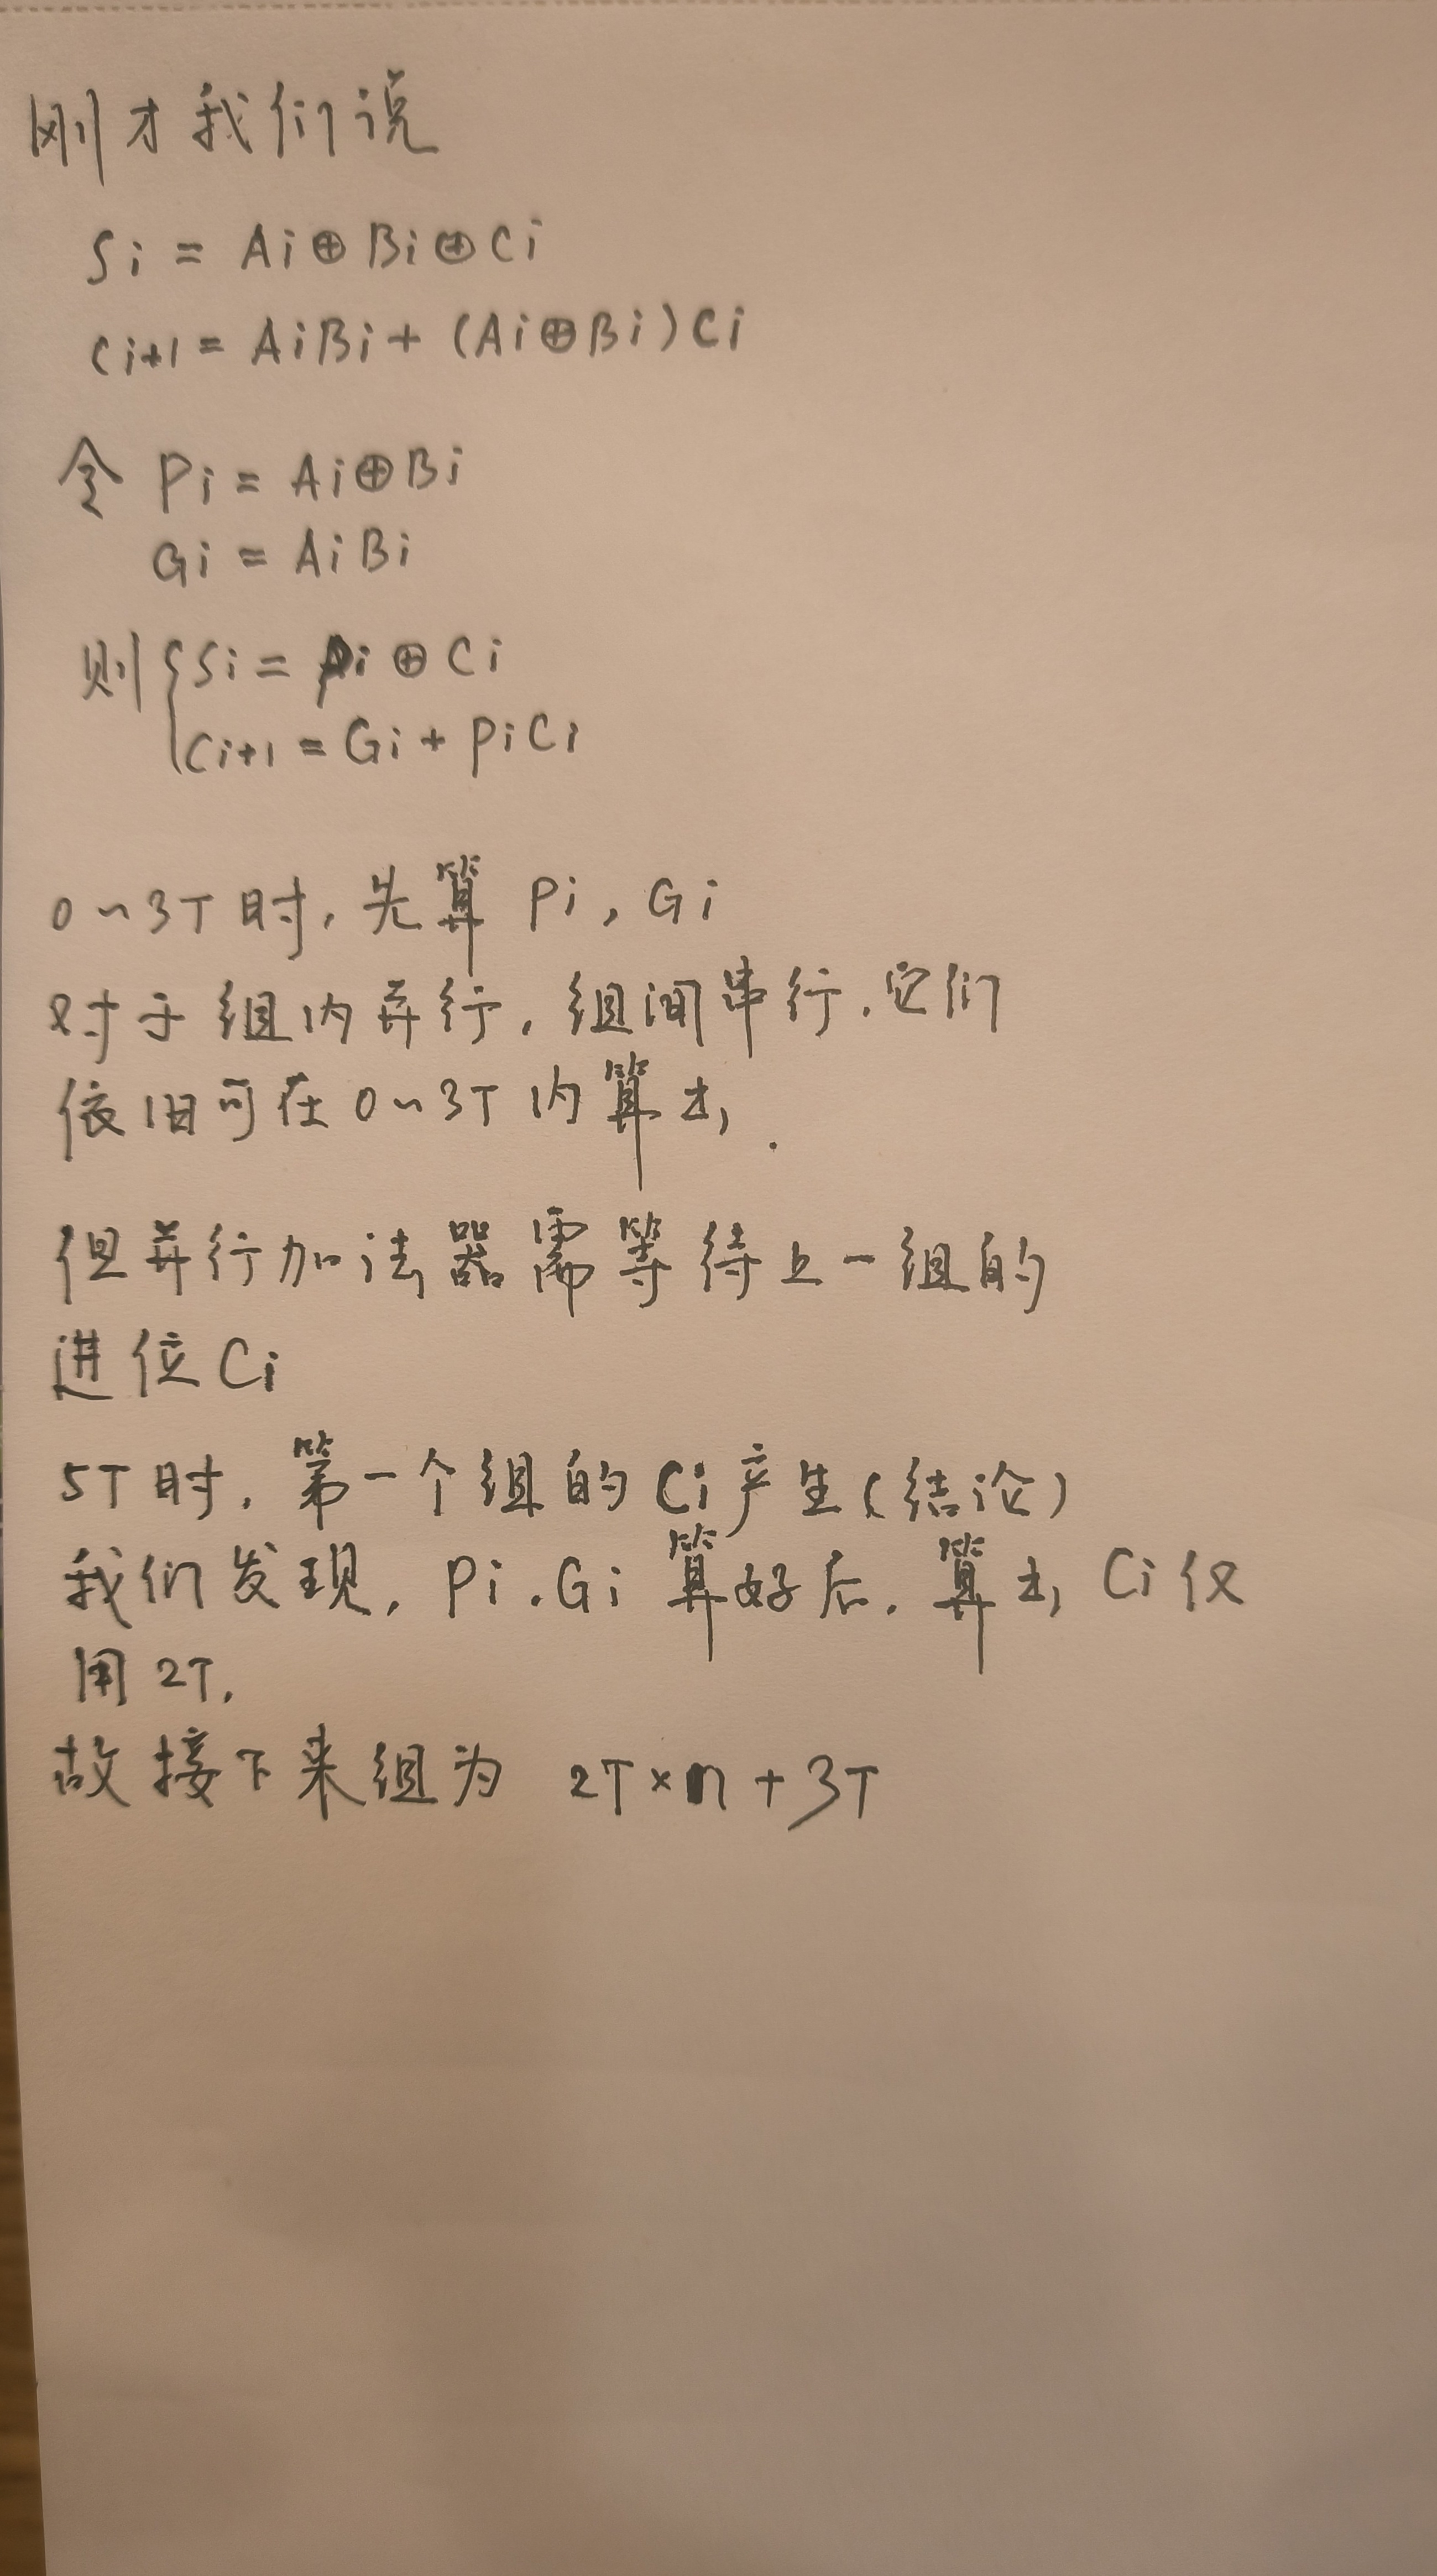 刚才我们说
Si = Ai⊕Bi⊕Ci
Ci+1 = AiBi + (Ai⊕Bi)Ci
令 Pi = Ai⊕Bi
Gi = AiBi
则{Si = Pi⊕Ci
Ci+1 = Gi + PiCi
0~3T时,先算 Pi, Gi
对于组内并行,组间串行.它们
依旧可在0~3T内算出.
但并行加法器需等待上一组的
进位Ci
5T时,第一个组的Ci产生(结论)
我们发现, Pi.Gi 算好后.算出Ci仅
用2T.
故接下来组为 2T×n+3T